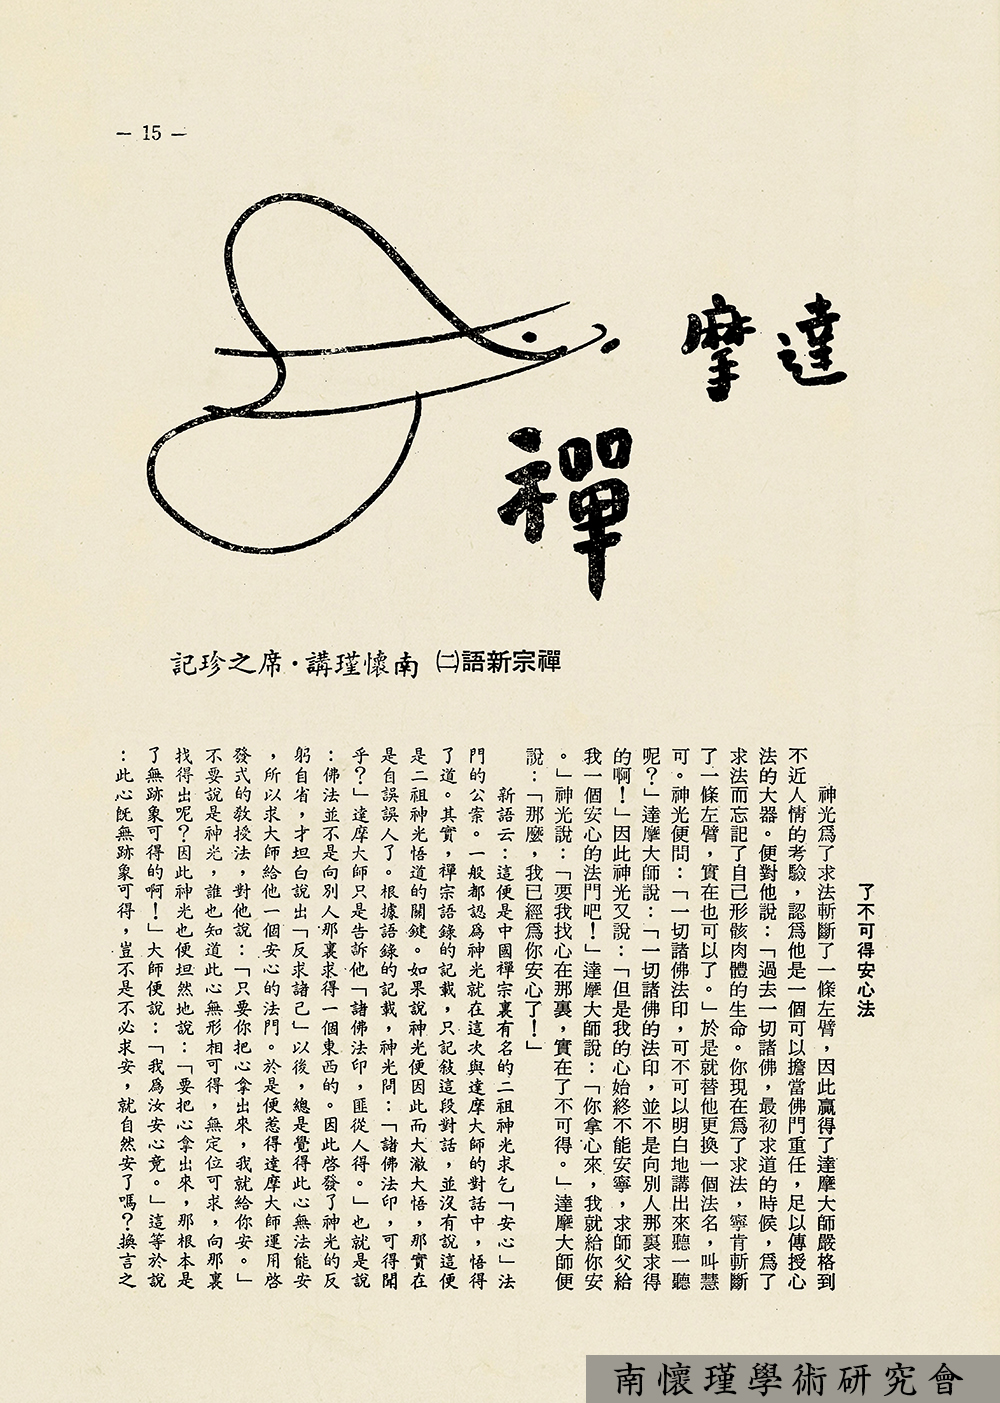 — 15 —
達摩
禪
禪宗新語㈡ 南懷瑾講・席之珍記
了不可得安心法
神光爲了求法斬斷了一條左臂，因此贏得了達摩大師嚴格到
不近人情的考驗，認爲他是一個可以擔當佛門重任，足以傳授心
法的大器。便對他說：「過去一切諸佛，最初求道的時候，爲了
求法而忘記了自己形骸肉體的生命。你現在爲了求法，寧肯斬斷
了一條左臂，實在也可以了。」於是就替他更換一個法名，叫慧
可。神光便問：「一切諸佛法印，可不可以明白地講出來聽一聽
呢？」達摩大師說：「一切諸佛的法印，並不是向別人那裏求得
的啊！」因此神光又說：「但是我的心始終不能安寧，求師父給
我一個安心的法門吧！」達摩大師說：「你拿心來，我就給你安
。」神光說：「要我找心在那裏，實在了不可得。」達摩大師便
說：「那麼，我已經爲你安心了！」
新語云：這便是中國禪宗裏有名的二祖神光求乞「安心」法
門的公案。一般都認爲神光就在這次與達摩大師的對話中，悟得
了道。其實，禪宗語錄的記載，只記敍這段對話，並沒有說這便
是二祖神光悟道的關鍵。如果說神光便因此而大澈大悟，那實在
是自誤誤人了。根據語錄的記載，神光問：「諸佛法印，可得聞
乎？」達摩大師只是告訴他「諸佛法印，匪從人得。」也就是說
：佛法並不是向別人那裏求得一個東西的。因此啓發了神光的反
躬自省，才坦白說出「反求諸己」以後，總是覺得此心無法能安
，所以求大師給他一個安心的法門。於是便惹得達摩大師運用啓
發式的教授法，對他說：「只要你把心拿出來，我就給你安。」
不要說是神光，誰也知道此心無形相可得，無定位可求，向那裏
找得出呢？因此神光也便坦然地說：「要把心拿出來，那根本是
了無跡象可得的啊！」大師便說：「我爲汝安心竟。」這等於說
：此心旣無跡象可得，豈不是不必求安，就自然安了嗎？換言之
南懷瑾學術研究會